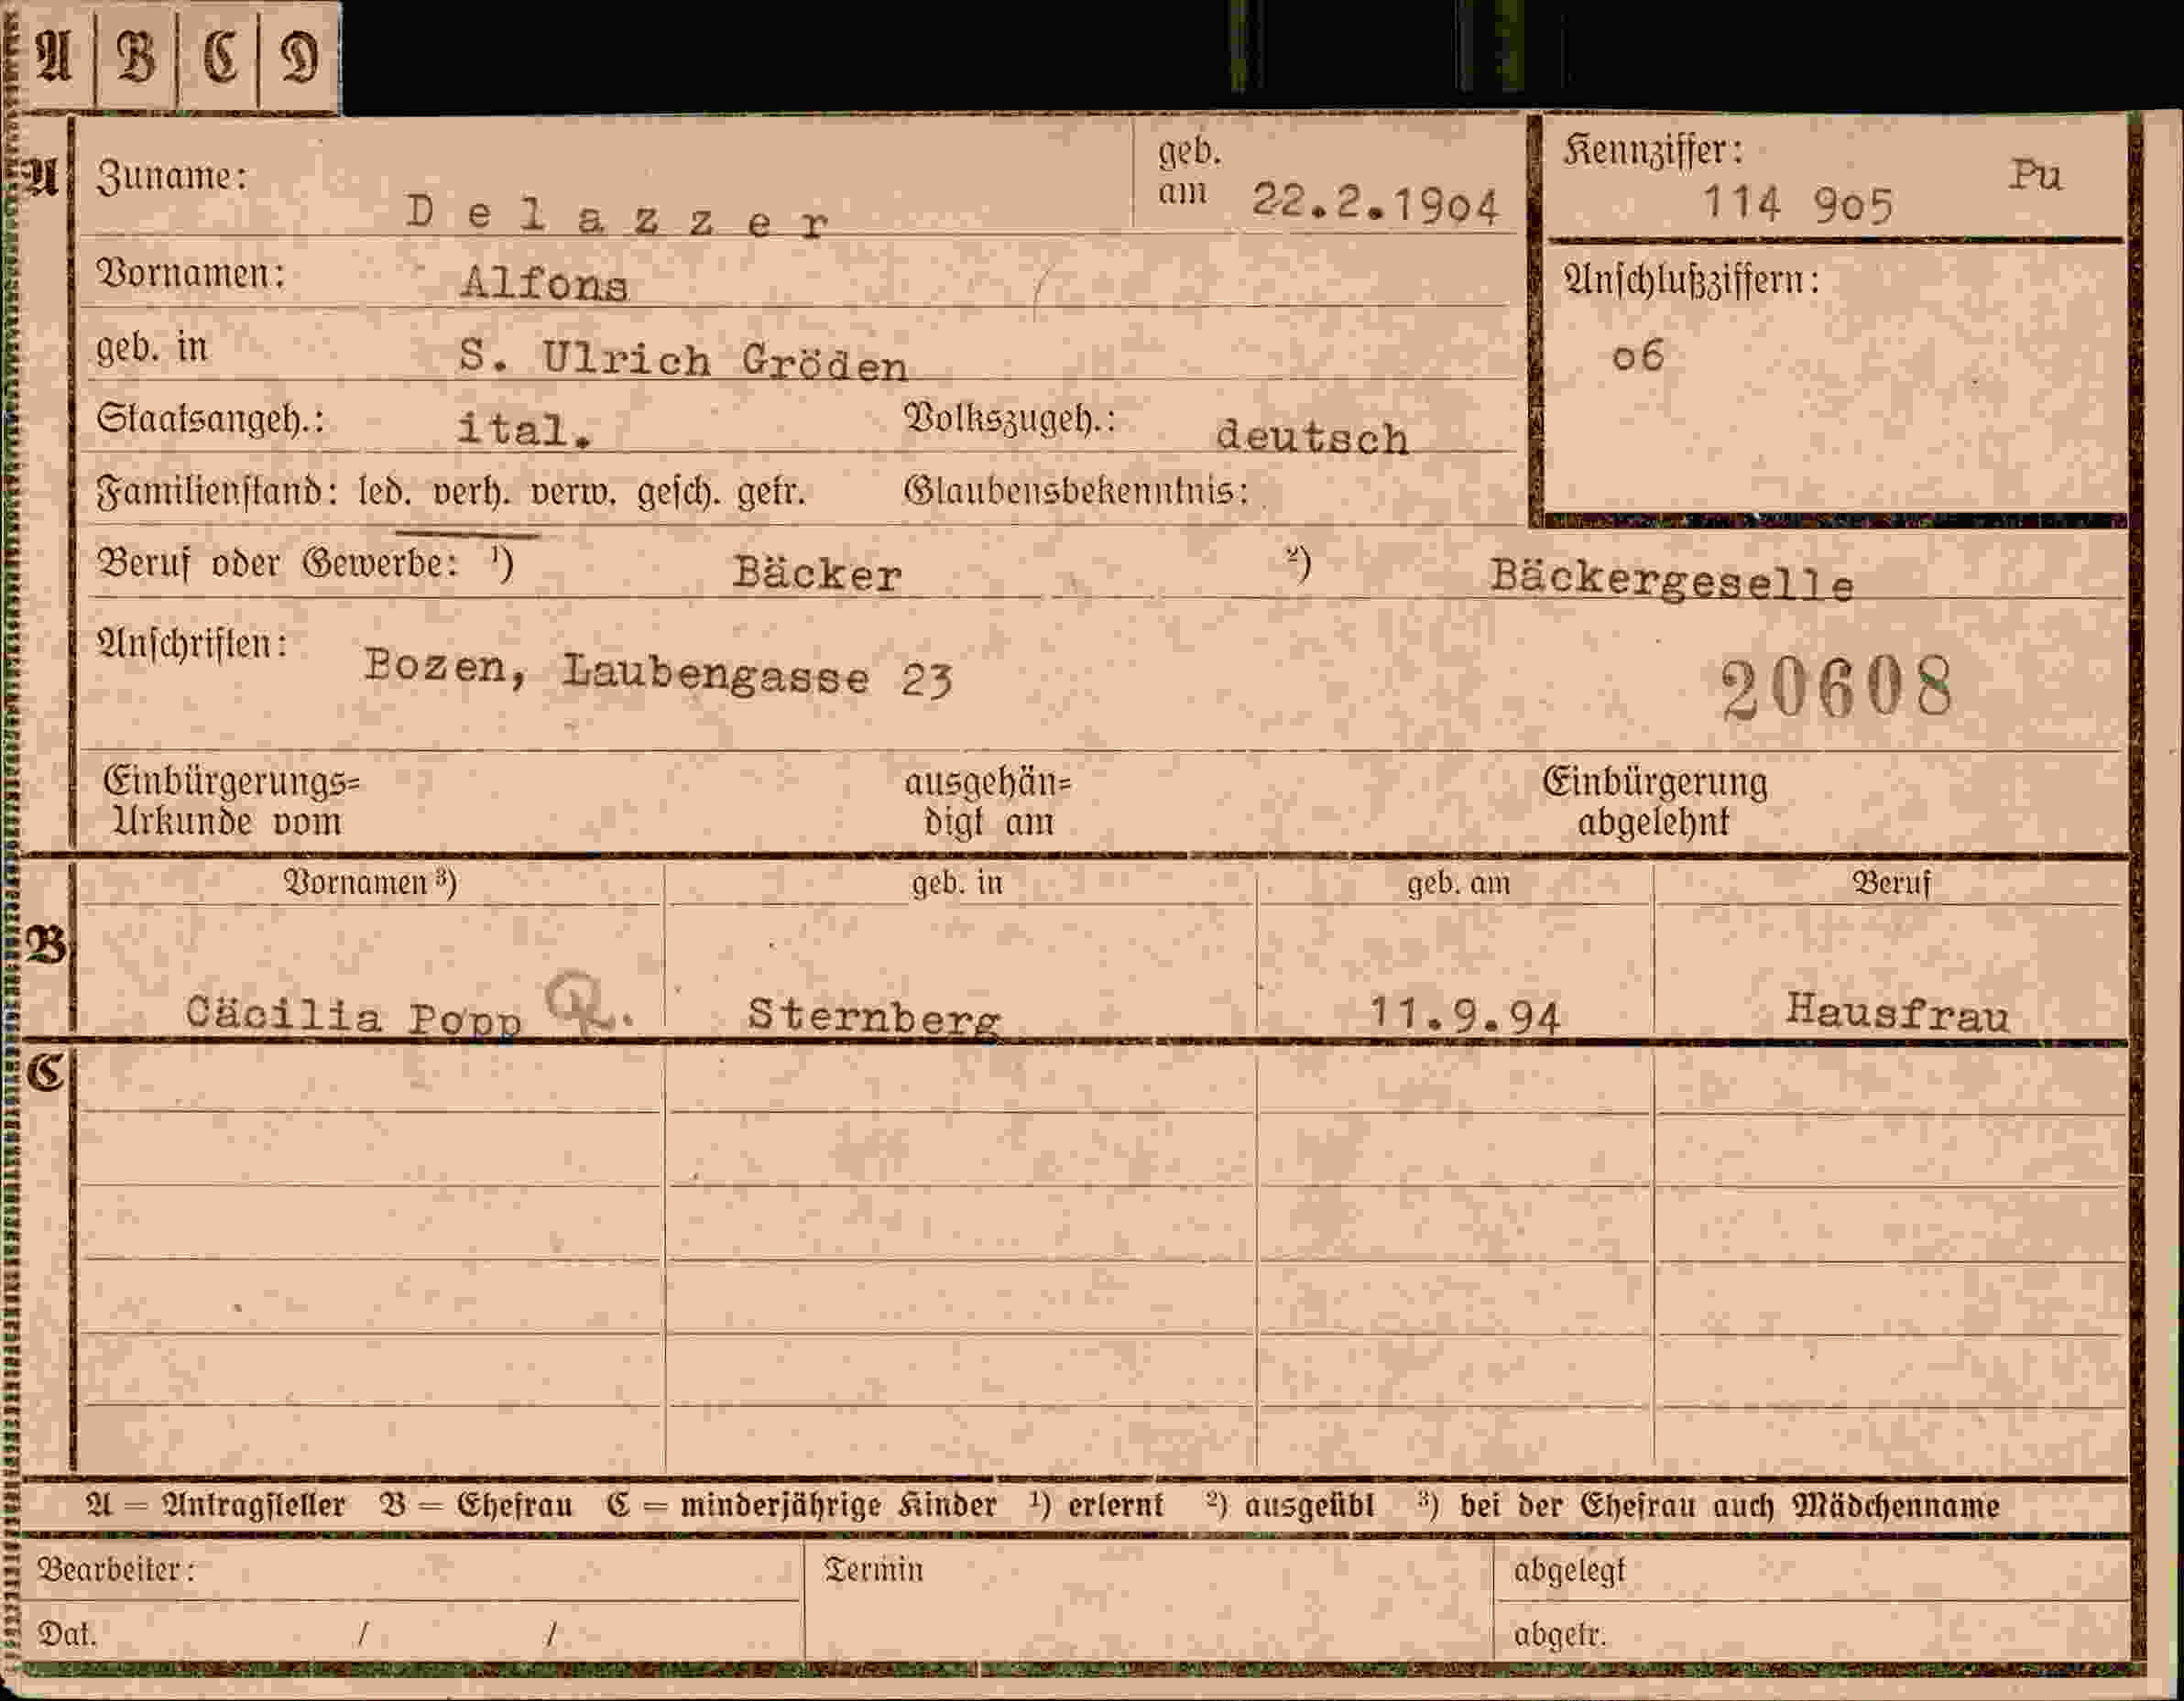 A B C D
A Zuname: Delazzer geb. am 22.2.1904 Kennziffer: 114 905 Pu
Vornamen: Alfons Anschlußziffern:
geb. in S. Ulrich Gröden o6
Staatsangeh.: ital. Volkszugeh.: deutsch
Familienstand: led. verh. verw. gesch. getr. Glaubensbekenntnis:
Beruf oder Gewerbe: ¹) Bäcker ²) Bäckergeselle
Anschriften: Bozen, Laubengasse 23 20608
Einbürgerungs= ausgehän= Einbürgerung
Urkunde vom digt am abgelehnt
Vornamen ³) geb. in geb. am Beruf
B
Cäcilia Popp Sternberg 11.9.94 Hausfrau
C
A = Antragsteller B = Ehefrau C = minderjährige Kinder ¹) erlernt ²) ausgeübt ³) bei der Ehefrau auch Mädchenname
Bearbeiter: Termin abgelegt
Dat. / / abgetr.